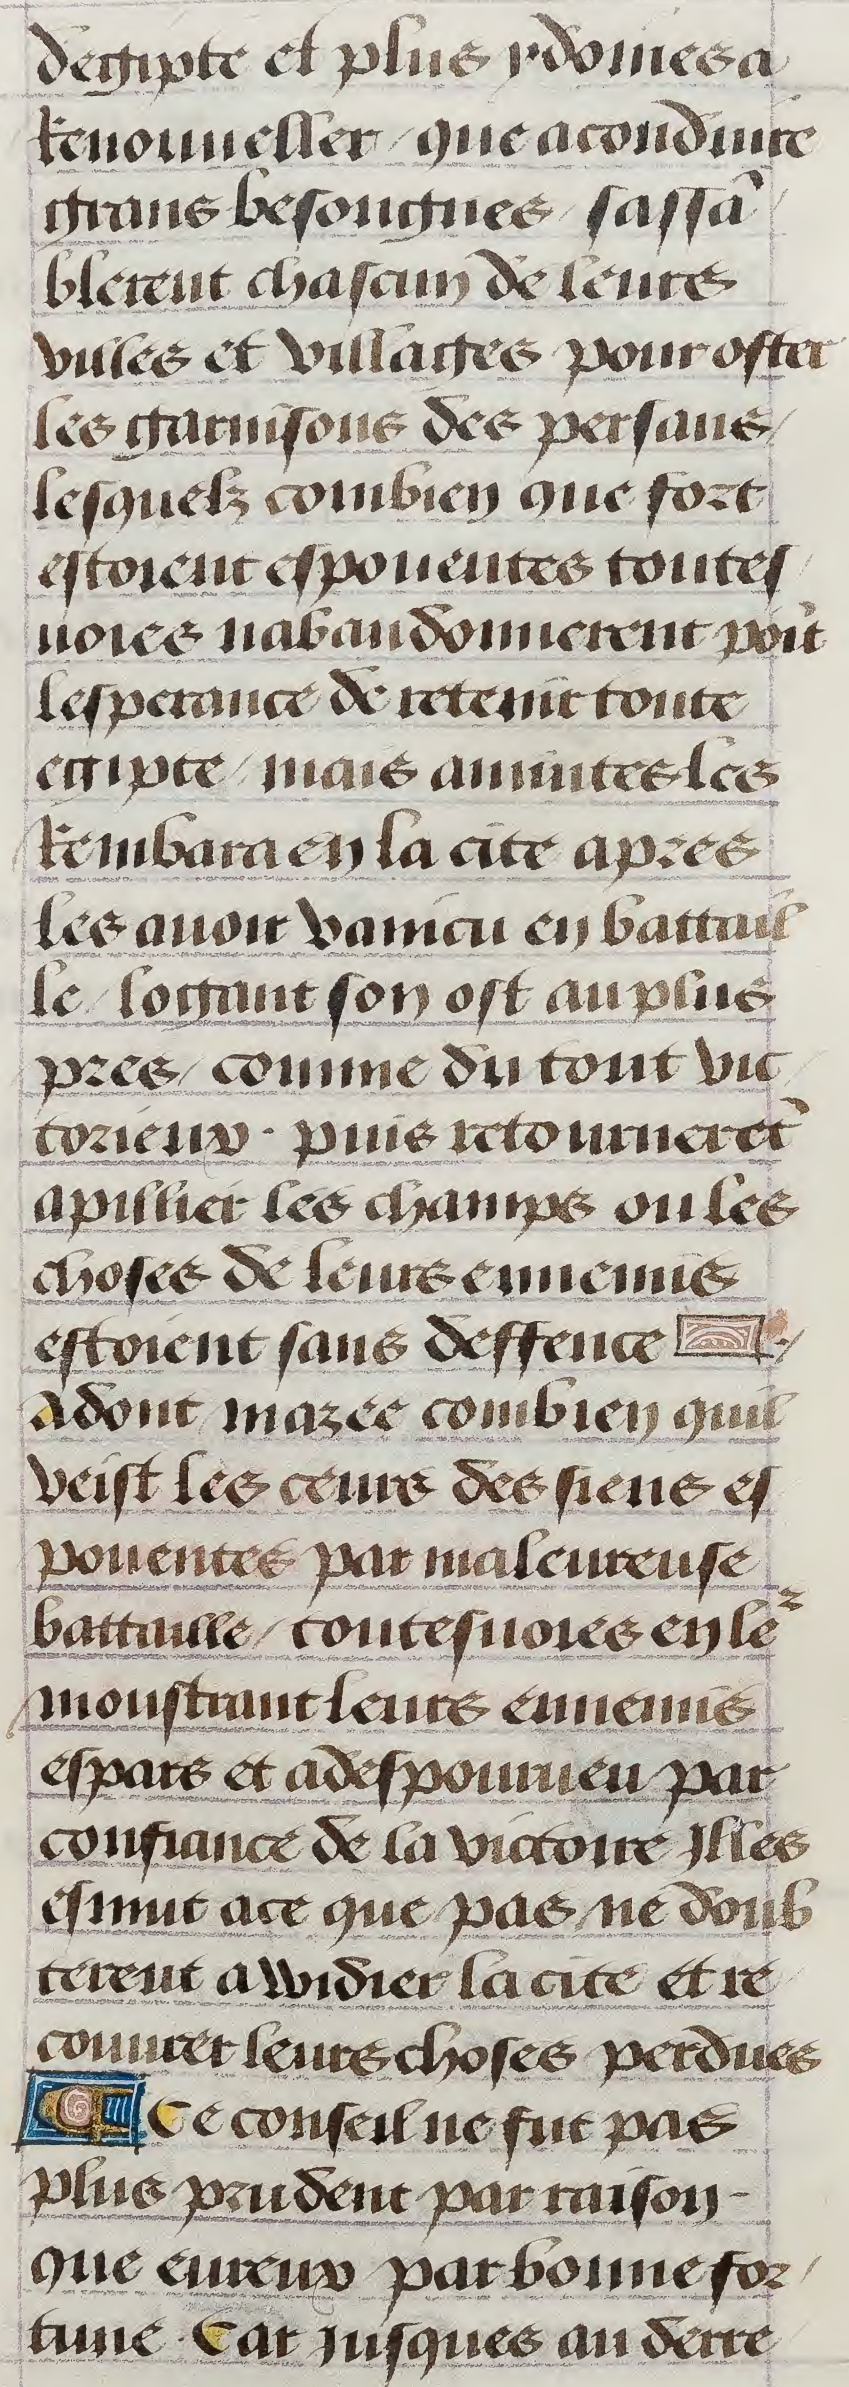 degipte et plus ydoines a
Renouueller / que a conduire
grans besongnes / sassā
blerent chascun de leurs
villes et villages pour oster
les garnisons des persans /
lesquelz combien que fort
estoient espouentes toutes /
uoies nabandonnerent poīt
lesperance de retenir toute
egipte / mais amintes les
Rembara en la cite apres
les auoir vaincu en battail
le / logant son ost au plus
pres / comme du tout vic /
torieux . puis retournerēt
a pillier les champs ou les
choses de leurs ennemis
estoient sans deffence . /
Adont mazee combien quil
veist les ceurs des siens es
pouentes par maleureuse
battaille / toutesuoies en leᷣ
monstrant leurs ennemis
espars et a despourueu par
confiance de la victoire Il les
esmut a ce que pas ne doub
terent a widier la cite et re /
couurer leurs choses perdues
¶ Ce conseil ne fut pas
plus prudent par raison -
que eureux par bonne for /
tune . Car jusques au derre